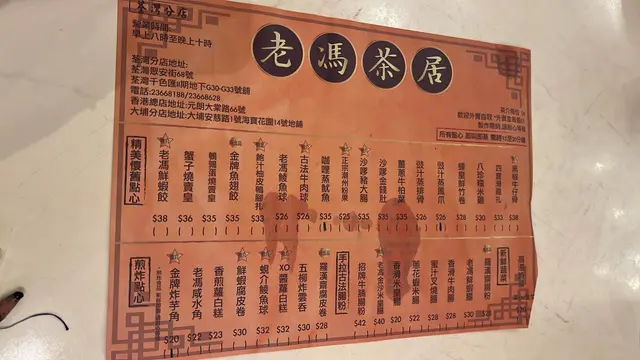 荃灣分店
營業時間
早上八時至晚上十時
荃灣分店地址:
荃灣眾安街68號
荃灣千色匯II期地下G30-G33號舖
電話:23668188/23668628
香港總店地址:元朗大棠路66號
大埔分店地址:大埔安慈路1號海寶花園14號地舖
老馮茶居
精美懷舊點心
老馮鮮蝦餃 $38
蟹子燒賣皇 $36
鵪鶉蛋燒賣 $35
金牌魚翅餃 $35
鮑汁柚皮鴨腳扎 $33
老馮鯪魚球 $26
古法牛肉球 $26
咖哩蒸魷魚 $35
正宗潮州粉果 $25
沙嗲豬大腸 $35
沙嗲金錢肚 $35
薑蔥牛柏葉 $35
豉汁蒸排骨 $26
豉汁蒸鳳爪 $26
蠔皇鮮竹卷 $30
八珍糯米雞 $30
四寶滑雞扎 $33
黑椒牛仔骨 $38
煎炸點心
金牌炸芋角 $20
老馮咸水角 $22
香煎蘿蔔糕 $23
鮮蝦腐皮卷 $30
蜆介鯪魚球 $32
XO醬蘿白糕 $32
五柳炸雲吞 $30
羅漢齋腐皮卷 $28
手拉古法腸粉
招牌牛腩腸粉 $42
老馮金沙米皇腸 $40
香滑米皇腸 $20
蔥花蝦米腸 $22
蜜汁叉燒腸 $28
香滑牛肉腸 $28
老馮鮮蝦腸 $30
羅漢齋腸粉 $28